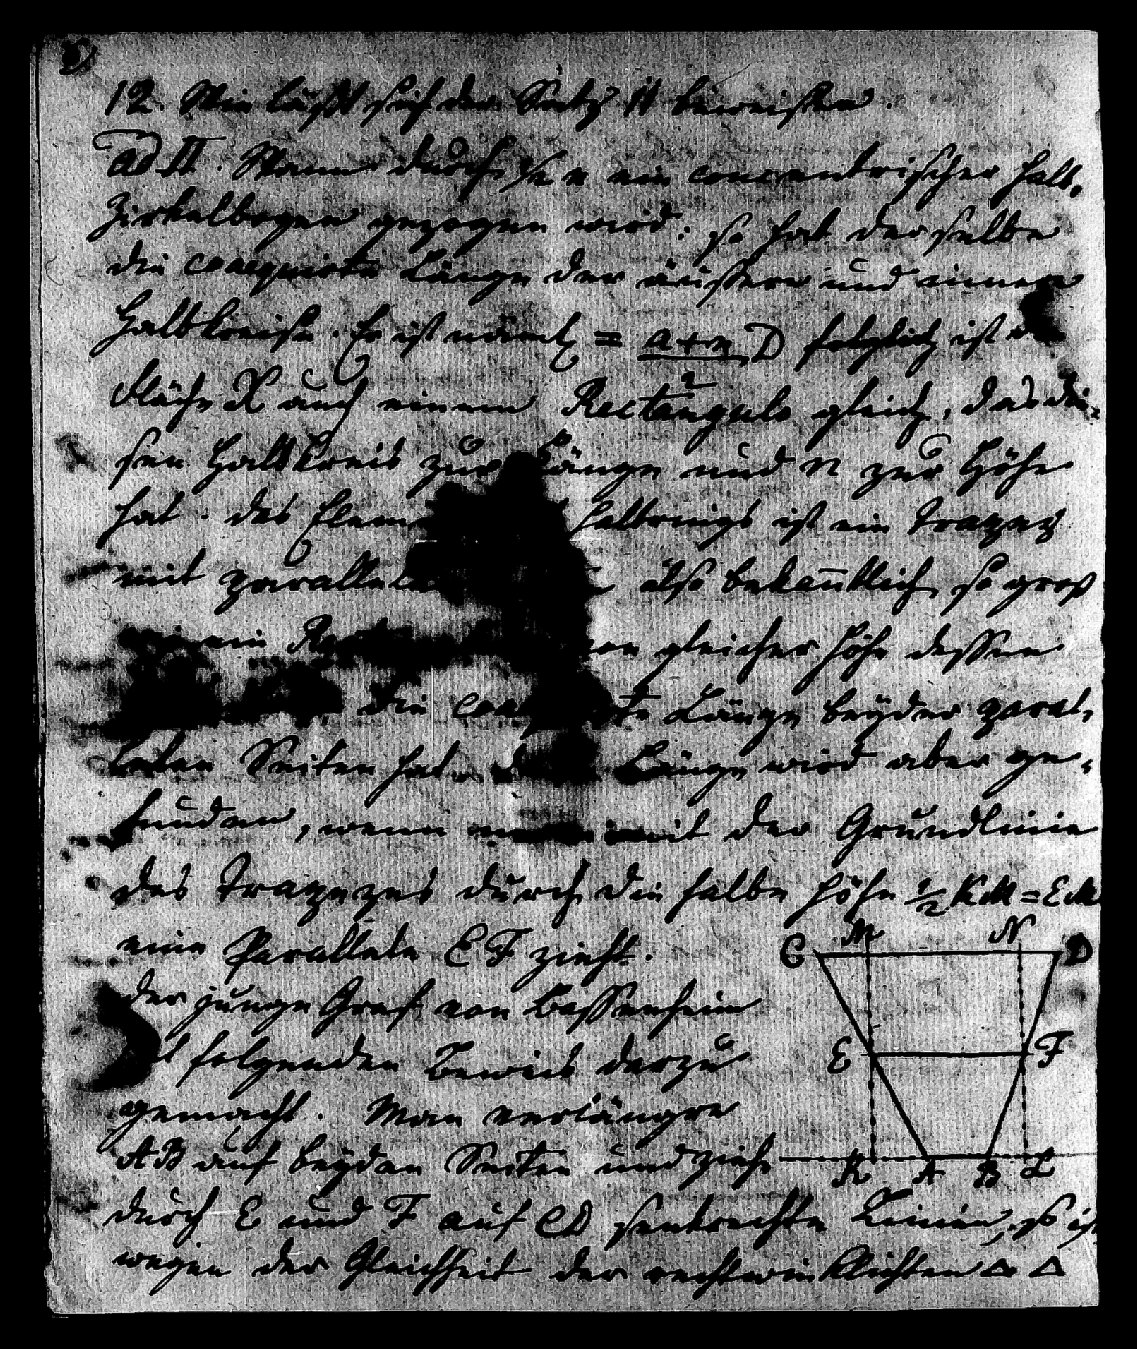 12. Wie läßt sich der Satz II beweisen.
ad II. Wann durch ½ n ein concentrischer halb-
Zirkelbogen gezogen wird: so hat derselbe
die coaequirte Länge der äußern und innern
Halbkreise. Er ist näml = a+n/2 D folglich ist
Fläche K auch einem Rectangulo gleich, das die-
sen Halbkreis zur Länge und n zur Höhe
hat. das Elem Halbrings ist ein Trapez
mit parallelen also bekanntlich so groß
ein von gleicher Höhe dessen
die Länge beyder paral-
lelen Seiten hat. Länge wird aber ge-
funden, wenn man mit der Grundlinie
des Trapezes durch die halbe Höhe ½ KM = EM
eine Parallele EF zieht.
C M N D
der junge Graf von Bassenheim
E F
folgenden Beweis darzu
gemacht. Man verlängre
AB auf beyden Seiten und ziehe
K A B L
durch E und F auf CD senkrechte Linien, so ist
wegen der Gleichheit der rechtwinklichten △ △